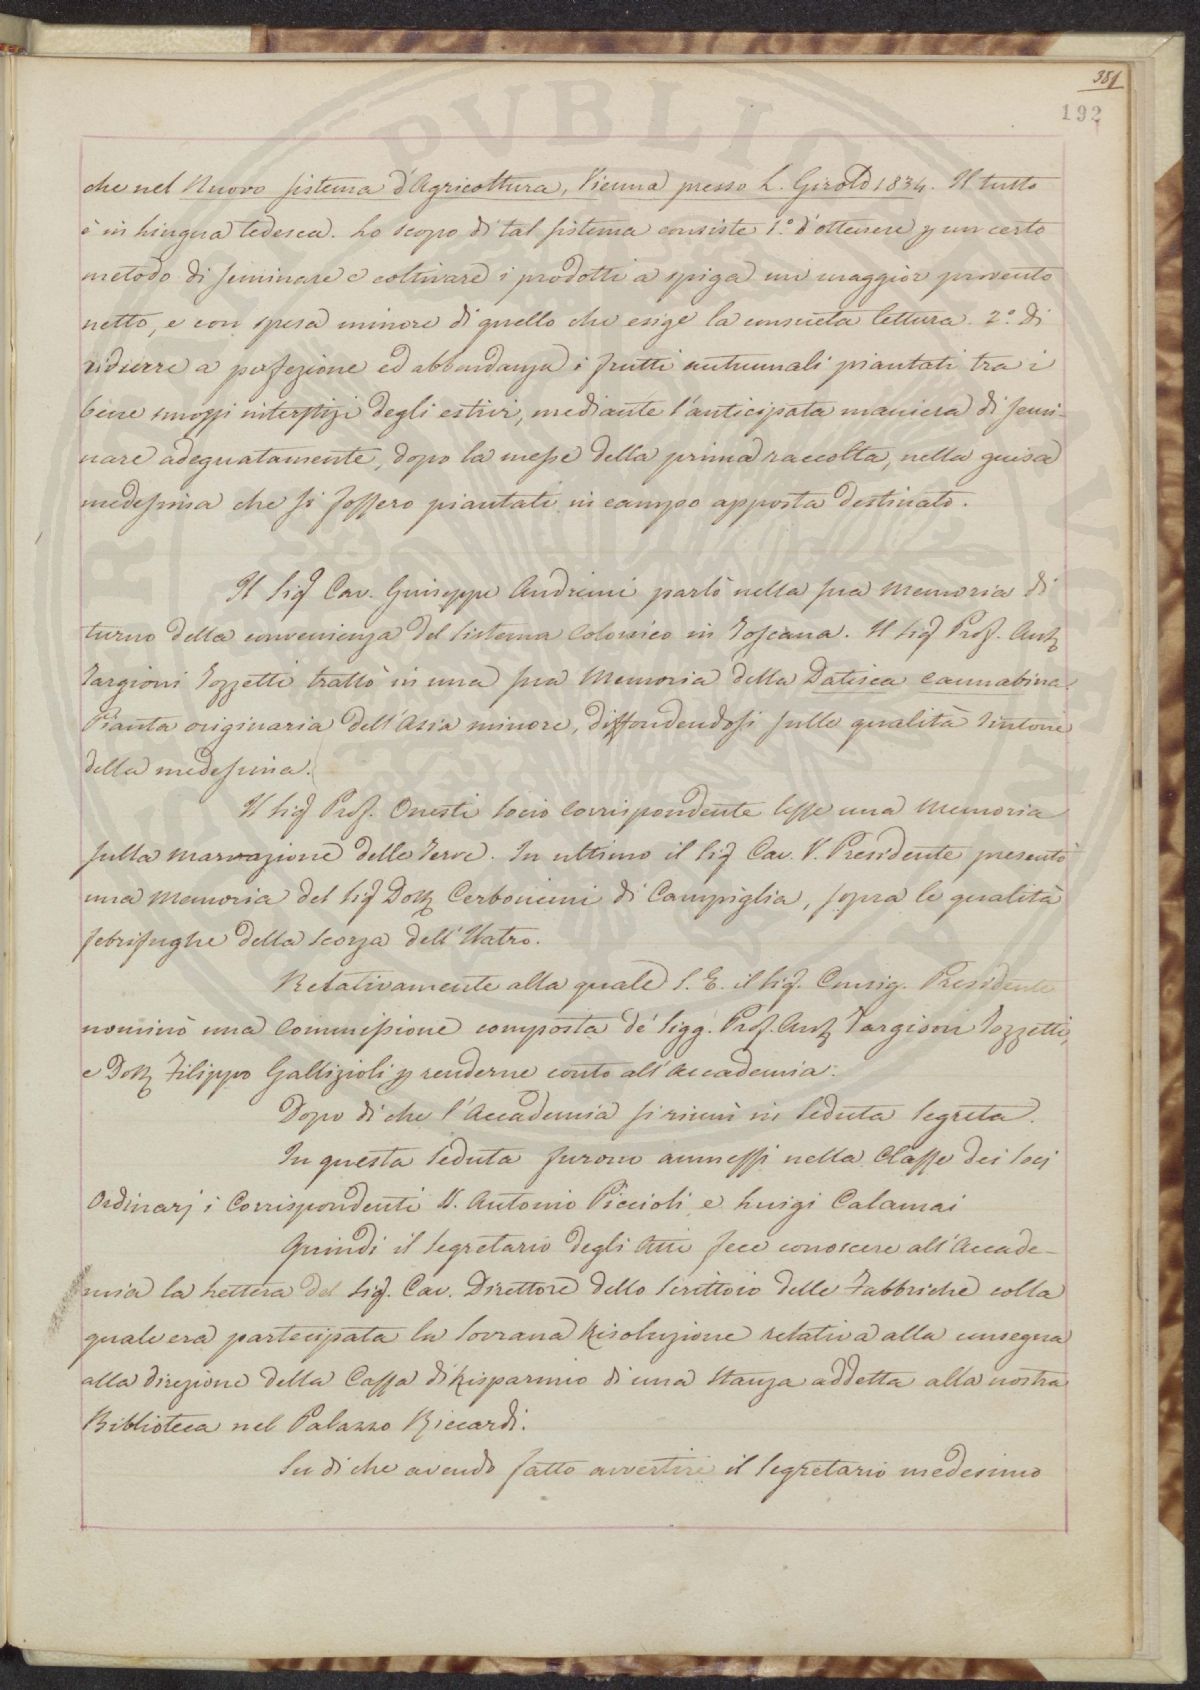 381
192
che nel Nuovo sistema d'Agricoltura, Vienna presso L. Girold 1834. Il tutto
è in Lingua tedesca. Lo scopo di tal sistema consiste 1.° d'ottenere p un certo
metodo di seminare e coltivare i prodotti a spiga un maggior provento
netto, e con spesa minore di quello che esige la consueta lettura. 2.° di
ridurre a perfezione ed abbondanza i frutti autumnali piantati tra i
bene smossi interstizi degli estivi, mediante l'anticipata maniera di semi-
nare adeguatamente, dopo la messe della prima raccolta, nella guisa
medesima che si fossero piantati in campo apposta destinato.
Il Sig Cav. Giuseppe Andreini parlò nella sua Memoria di
turno della convenienza del Sistema Colonico in Toscana. Il Sig Prof. Ant
Targioni Tozzetti trattò in una sua Memoria della Datisca cannabina
Pianta originaria dell'Asia minore, diffondendosi sulle qualità tintorie
della medesima.
Il Sig Prof. Onesti Socio Corrispondente lesse una Memoria
sulla marnazione delle Terre. In ultimo il Sig Cav. V. Presidente presentò
una Memoria del Sig Dott Cerboncini di Campiglia, sopra le qualità
febrifughe della Scorza dell'Ilatro.
Relativamente alla quale S. E. il Sig. Consig. Presidente
nominò una Commissione composta de' Sigg. Prof. Ant Targioni Tozzetti,
e Dott Filippo Gallizioli p renderne conto all'Accademia.
Dopo di che l'Accademia si riunì in Seduta Segreta.
In questa Seduta furono ammessi nella Classe dei Soci
Ordinarj i Corrispondenti Antonio Piccioli, e Luigi Calamai
Quindi il Segretario degli Atti fece conoscere all'Accade-
mia la Lettera del Sig. Cav. Direttore dello Scrittoio delle Fabbriche colla
quale era partecipata la Sovrana Risoluzione relativa alla consegna
alla direzione della Cassa di Risparmio di una Stanza addetta alla nostra
Biblioteca nel Palazzo Riccardi.
Su di che avendo fatto avvertire il Segretario medesimo